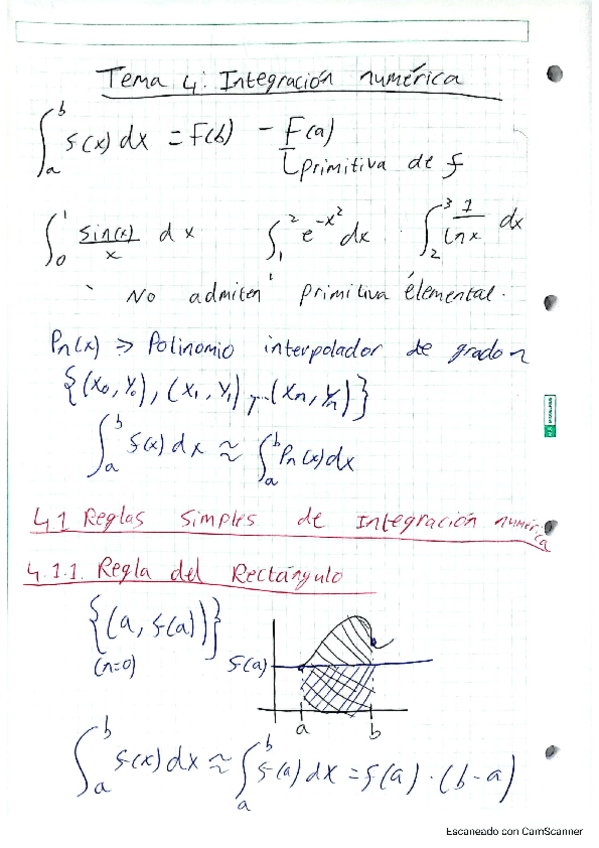 Tema 4: Integración numérica
∫_a^b f(x) dx = F(b) - F(a)
primitiva de f
∫_0^1 sin(x)/x dx   ∫_1^2 e^{-x^2} dx   ∫_2^3 1/ln x dx
No admiten primitiva elemental.
Pn(x) => Polinomio interpolador de grado n
{(x_0, y_0), (x_1, y_1), ... (x_n, y_n)}
∫_a^b f(x) dx ≈ ∫_a^b Pn(x) dx
4.1 Reglas simples de Integración numérica
4.1.1. Regla del Rectángulo
{(a, f(a))}
(n=0)
f(a)
a b
∫_a^b f(x) dx ≈ ∫_a^b f(a) dx = f(a) · (b-a)
Escaneado con CamScanner